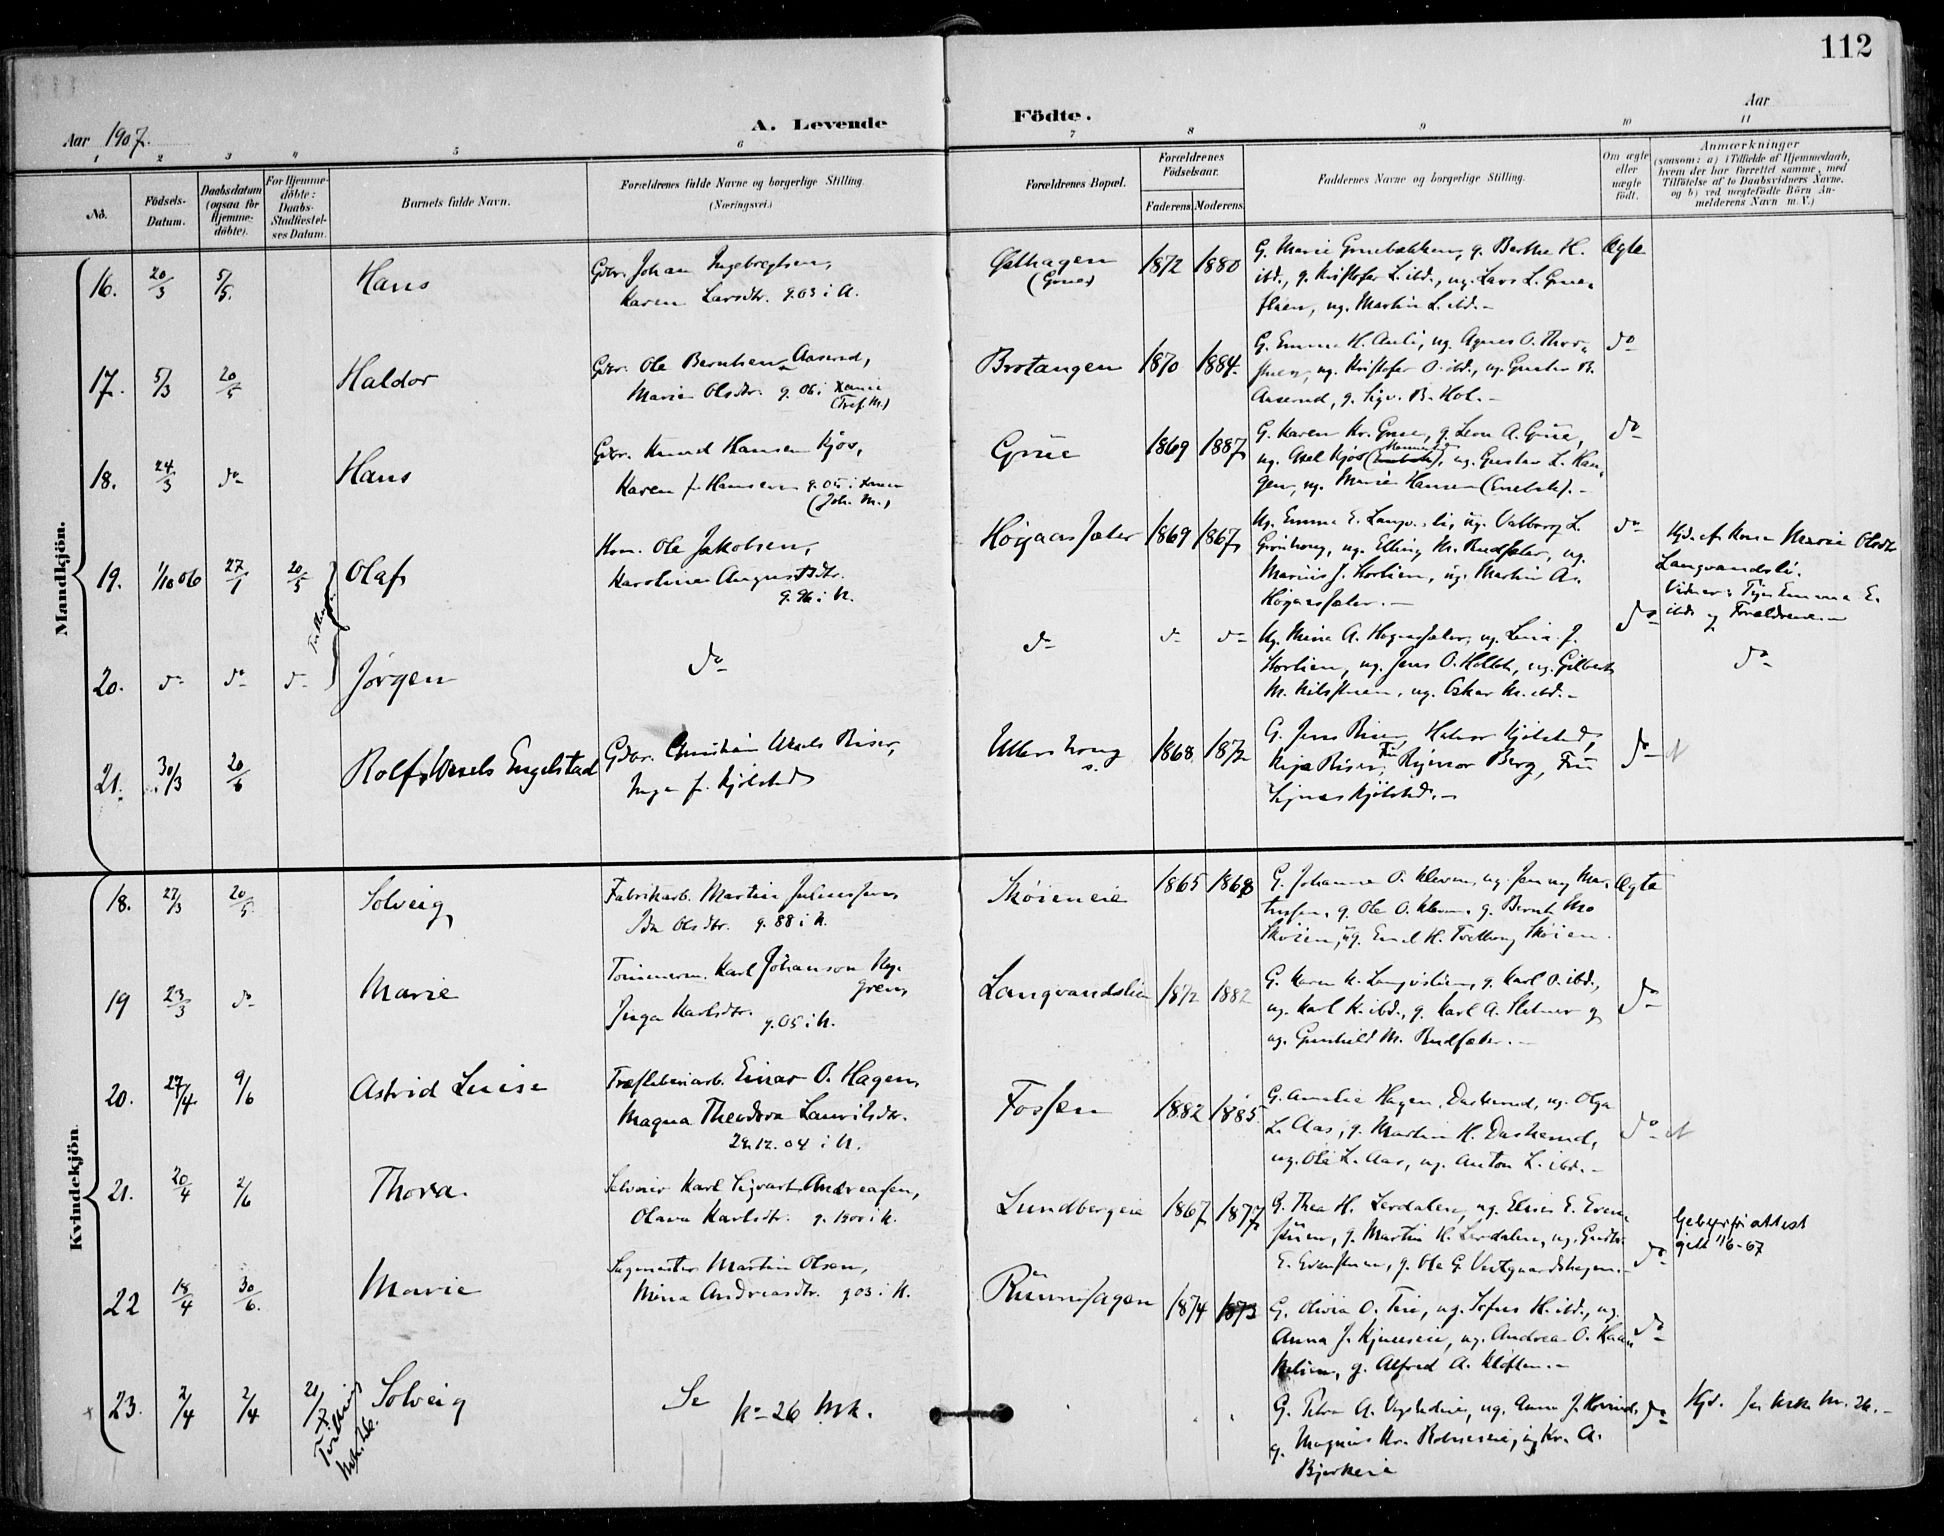 112
Aar 1907.
A. Levende Födte.
Aar
1 2 3 4 5 6 7 8 9 10 11
No.
Födsels-Datum.
Daabsdatum (ogsaa for Hjemme-döbte).
For Hjemme-döbte: Daabs-Stadfæstel-ses Datum.
Barnets fulde Navn.
Forældrenes fulde Navne og borgerlige Stilling (Næringsvei.)
Forældrenes Bopæl.
Forældrenes Födselsaar.
Faderens Moderens
Faddernes Navne og borgerlige Stilling.
Om ægte eller uægte födt.
Anmærkninger
(saasom: a) i Tilfælde af Hjemmedaab, hvem der har forrettet samme, med Tilföielse af to Daabsvidners Navne, og b) ved uægtefödte Börn Anmelderens Navn m. V.)
Mandkjön.
16. 20/3 5/5. Hans
Gbr. Johan Ingebregtsen,
Karen Larsdtr. g. 03 i A.
(Grue) 1872 1880
G. Marie Gruebakken, g. Berthe H.
ibd., g. Kristofer L. ibd., ug. Lars L. Grue-
stuen, ug. Martin L. ibd.-
Ægte
17. 5/3 20/5 Haldor
Gbr. Ole Berntsen Aaserud,
Marie Olsdtr. g. 06 i
Brotangen 1870 1884.
G. Emma H. ug. Agnes O. Thor-
stuen, ug. Kristofer O. ibd., ug. Gustav B.
Aaserud, g. Sigv. B. Hol.-
do
18. 24/3 do Hans
Gbr. Knud Hansen Kjos,
Karen f. Hansen g. 05 i
(Joh. M.)
Grue 1869 1887
G. Karen Kr. Grue, g. Leon A. Grue,
ug. Axel Kjos ug. Gustav L. Han-
gen, ug. Marie Hansen
do
19. 1/10 06 27/1 20/5 Olaf
Hm. Ole Jakobsen,
Karoline Augustsdtr.
g. 96 i N.
Høgaassæter 1869 1867
Ug. Emma E. ug. Valborg L.
ug. Elling M. Rudsæter, ug.
Marius J. Morlien, ug. Martin A.
Høgaassæter.-
do
Hjd. af Kone Marie Olsdtr
Langvandsli.
Vidner: Pige Emma E.
ibd. og Forældrene.-
20. do do do Jørgen
do
do do do
Ug. Mina A. Høgaassæter, ug. Lina J.
ug. Jens O. ug. Gilbert
M. Nilsstuen, ug. Oskar M. ibd.-
do
do
21. 30/3 20/6 Rolf Wesels Engelstad
Gbr. Christian Wesels Riser,
Inga f. Kjølstad
Ullershong 1868 1872
G. Jens Riser, Halvor Kjølstad,
Riser, Fru Berg, Fru
Kjølstad.-
do
Kvindekjön
18. 27/3 20/5. Solveig
Fabrikarb. Martin Juliussen
Ida Olsdtr. g. 88 i N.
Skøieneie 1865 1868
G. Johanne O. Kleven, ug. Jenny Mar-
g. Ole O. Kleven, g. Bernt
Skøien, ug. Emil H. Skøien.
Ægte
19 23/3 do Marie
Tømmerm. Karl Johanson
Inga Karlsdtr. g. 05 i N.
Langvandslien 1872 1882
G. Karen K. g. Karl O. ibd.,
ug. Karl K. ibd., g. Karl A. og
ug. Gunhild M. Rudsæter.-
do
20. 27/4 9/6 Astrid Luise
Træsliberiarb. Einar O. Hagen,
Magna Theodora Lauritsdtr.
29.12.04 i N.
Fossen 1882 1885.
G. Amalie Hagen, Daskerud, ug. Olga
L. Aas, g. Martin H. Daskerud,
ug. Ole L. Aas, ug. Anton L. ibd.-
do
21. 20/4 2/6 Thora.
Selveier Karl Sigvart Andreasen,
Olava Karlsdtr. g. 1900 i N.
Lundbergeie 1867 1877
G. Thea H. Lerdalen, ug. Elise E. Even-
stuen, g. Martin H. Lerdalen, ug.
E. Evenstuen, g. Ole G. Vestgaardshagen.-
do
Gebyrfri attest
gitt 1/6-67
22 18/4 30/6. Marie
Sagmester Martin Olsen,
Mina Andreasdtr. g. 03 i N.
1874 1873
G. Olivia O. ug. Sofus H. ibd., ug.
Anna J. ug. Andrea O.
g. Alfred A. Kloften.-
do
23. 2/4 2/4 Solveig
Se No 26 Mk.
G. Petra A. ug. Anna J.
g. Magnus Kr. ug. Kr. A.
Bjerkeie
do
Hjd. Se Mk. Nr. 26.-